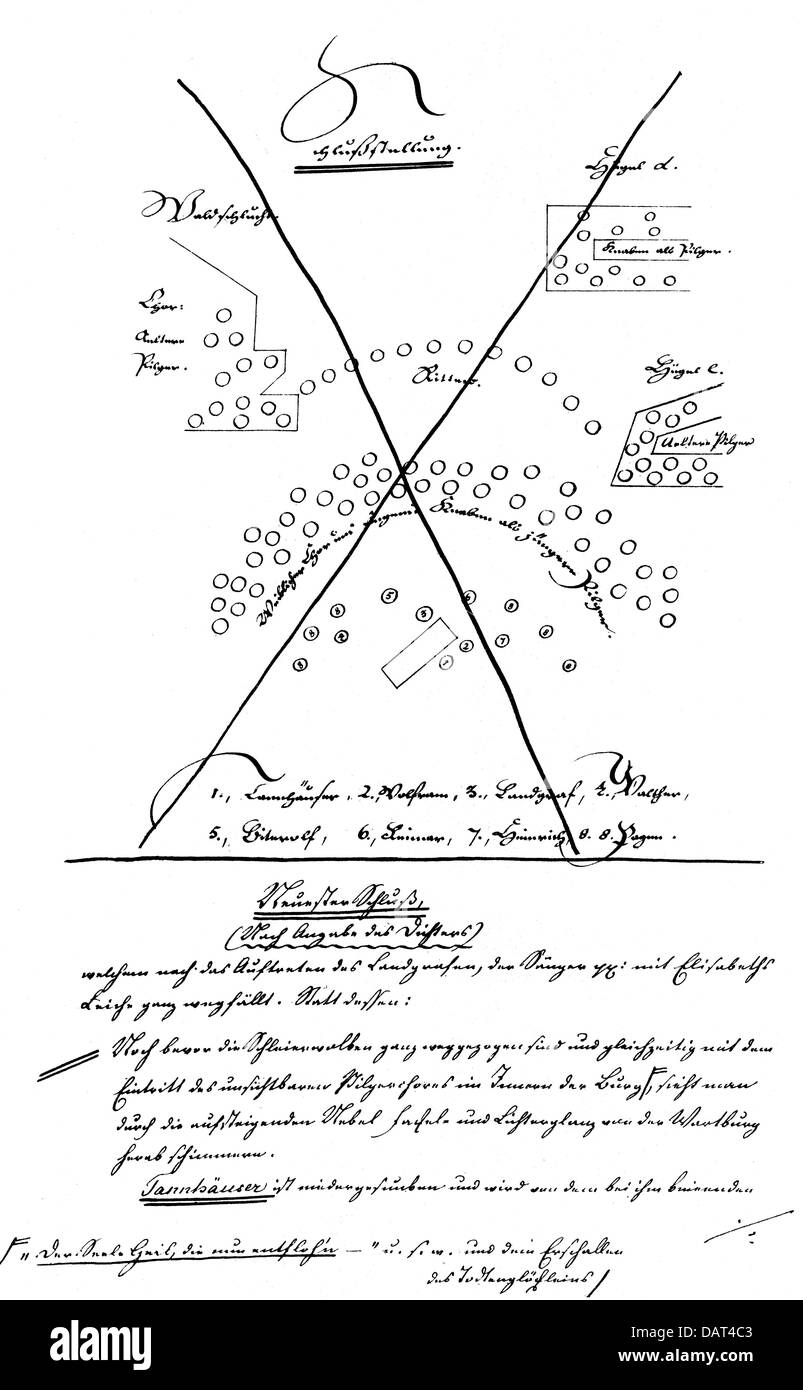 Schlußstellung.
Waldschlucht.
Hügel d.
Knaben als Pilger.
Chor:
Aeltere
Pilger.
Ritter.
Hügel c.
Aeltere Pilger
Weiblicher Chor und Knaben als jüngere Pilger.
5 6 8
8 5
3 4 2 7 8
8 1 8
1., Tannhäuser, 2., Wolfram, 3., Landgraf, 4., Walther,
5., Biterolf, 6., Reimar, 7., Heinrich, 8. 8. Pagen.
Neuester Schluß,
(Nach Angabe des Dichters)
welchem nach das Auftreten des Landgrafen, der Sänger pp: mit Elisabeths
Leiche ganz wegfällt. Statt dessen:
Noch bevor die Schleierwolken ganz weggezogen sind und gleichzeitig mit dem
Eintritt des unsichtbaren Pilgerchores im Innern der Burg, sieht man
durch die aufsteigenden Nebel Fackel- und Lichterglanz von der Wartburg
herab schimmern.
Tannhäuser ist niedergesunken und wird von dem bei ihm knieenden
„Der Seele Heil, die nun entfloh'n –" u. s. w. und dem Erschallen
des Todtenglöckleins
alamy
Image ID: DAT4C3
www.alamy.com